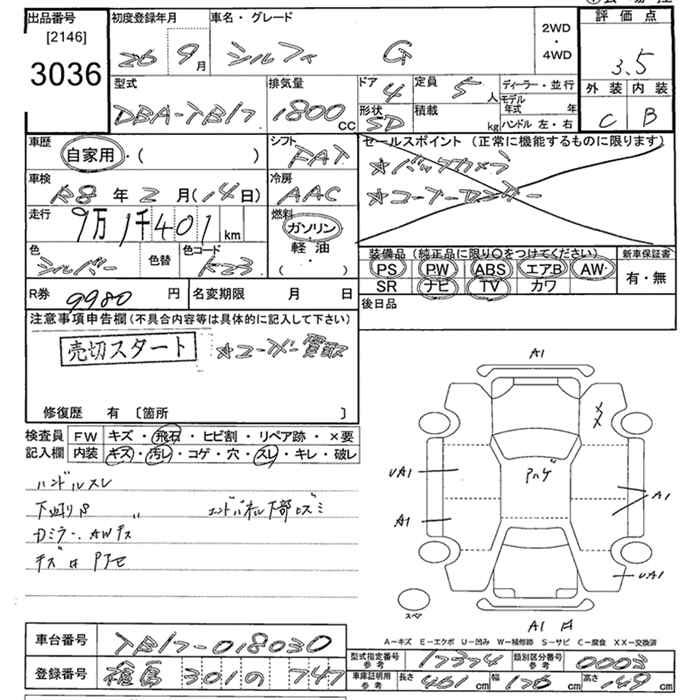 出品番号
[2146]
3036
初度登録年月
26 9月
車名・グレード
シルフィ G
2WD
・
4WD
評価点
3.5
外装 内装
C B
型式
DBA-TB17
排気量
1800 CC
ドア 4
形状 5D
定員 5 人
積載 kg
ディーラー・並行
モデル年式 年
ハンドル 左・右
車歴
自家用・( )
シフト
FAT
セールスポイント (正常に機能するものに限ります)
★バックカメラ
★コーナーセンサー
車検
R8 年 2 月(14日)
冷房
AAC
走行
9万1千401 km
燃料
ガソリン
軽油
( ・ )
色
シルバー
色替
色コード
K23
装備品 (純正品に限り〇をつけてください)
PS PW ABS エアB AW
SR ナビ TV カワ
新車保証書
有・無
R券 9980 円
名変期限 月 日
後日品
注意事項申告欄 (不具合内容等は具体的に記入して下さい)
売切スタート
★ユーザー買取
修復歴 有 〔箇所 〕
検査員
記入欄
FW キズ・飛石・ヒビ割・リペア跡・×要
内装 キズ・汚レ・コゲ・穴・スレ・キレ・破レ
ハンドルスレ
AWキズ
A1
UA1
A1
A1
UA1
A1
スペア
A-キズ E-エクボ U-凹み W-補修跡 S-サビ C-腐食 XX-交換済
車台番号 TB17-018030
登録番号 301 の 747
型式指定番号 参考 17374
類別区分番号 参考 0003
車庫証明用 参考 長さ 461 cm 幅 176 cm 高さ 149 cm